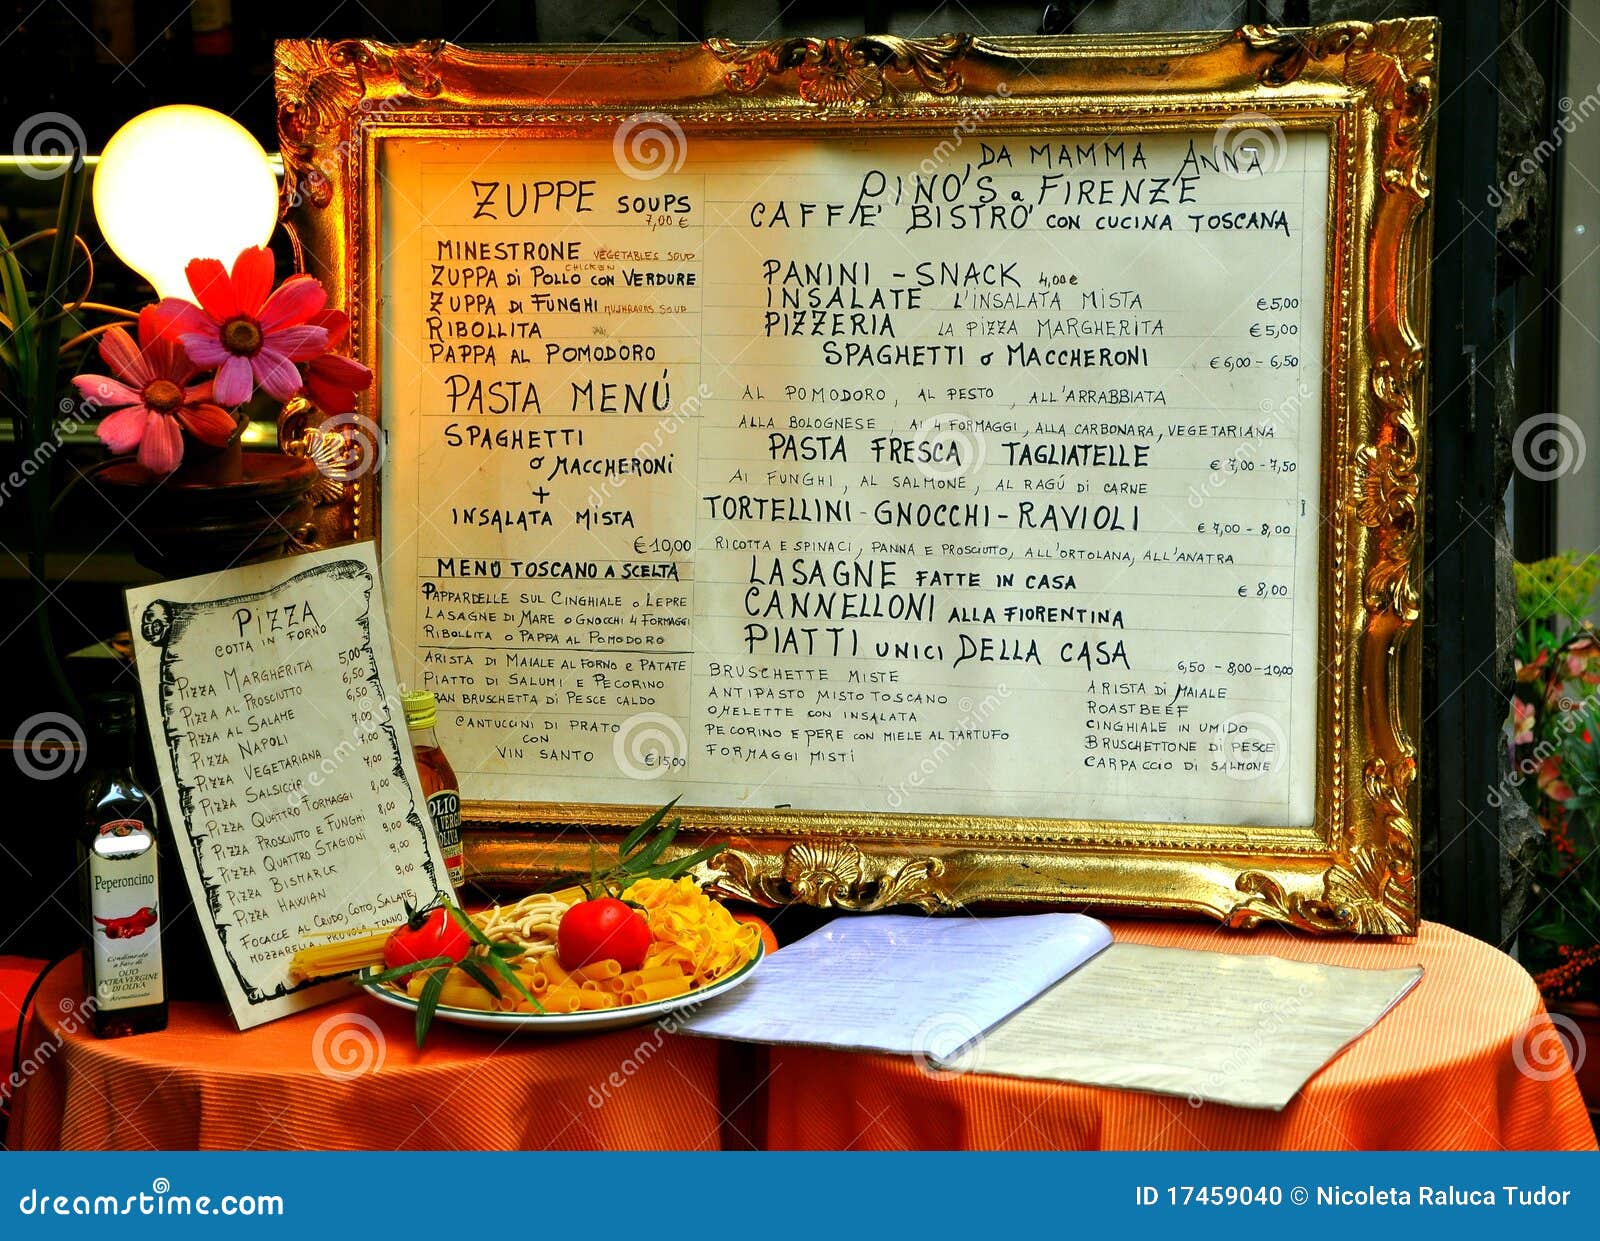 ZUPPE SOUPS
7,00 €
MINESTRONE VEGETABLES SOUP
CHICKEN
ZUPPA DI POLLO CON VERDURE
ZUPPA DI FUNGHI MUSHRAOMS SOUP
RIBOLLITA
PAPPA AL POMODORO
PASTA MENÚ
SPAGHETTI
O MACCHERONI
+
INSALATA MISTA
€ 10,00
MENU TOSCANO A SCELTA
PAPPARDELLE SUL CINGHIALE O LEPRE
LASAGNE DI MARE O GNOCCHI 4 FORMAGGI
RIBOLLITA O PAPPA AL POMODORO
ARISTA DI MAIALE AL FORNO E PATATE
PIATTO DI SALUMI E PECORINO
GRAN BRUSCHETTA DI PESCE CALDO
CANTUCCINI DI PRATO
CON
VIN SANTO €15,00
DA MAMMA ANNA
PINO'S a FIRENZE
CAFFE' BISTRO' CON CUCINA TOSCANA
PANINI - SNACK 4,00 €
INSALATE L'INSALATA MISTA €5,00
PIZZERIA LA PIZZA MARGHERITA €5,00
SPAGHETTI O MACCHERONI €6,00 - 6,50
AL POMODORO, AL PESTO, ALL'ARRABBIATA
ALLA BOLOGNESE, AI 4 FORMAGGI, ALLA CARBONARA, VEGETARIANA
PASTA FRESCA TAGLIATELLE € 7,00 - 7,50
AI FUNGHI, AL SALMONE, AL RAGÚ DI CARNE
TORTELLINI - GNOCCHI - RAVIOLI € 7,00 - 8,00
RICOTTA E SPINACI, PANNA E PROSCIUTTO, ALL'ORTOLANA, ALL'ANATRA
LASAGNE FATTE IN CASA € 8,00
CANNELLONI ALLA FIORENTINA
PIATTI UNICI DELLA CASA 6,50 - 8,00 - 10,00
BRUSCHETTE MISTE
ANTIPASTO MISTO TOSCANO
OMELETTE CON INSALATA
PECORINO E PERE CON MIELE AL TARTUFO
FORMAGGI MISTI
ARISTA DI MAIALE
ROASTBEEF
CINGHIALE IN UMIDO
BRUSCHETTONE DI PESCE
CARPACCIO DI SALMONE
PIZZA
COTTA IN FORNO
PIZZA MARGHERITA 5,00
PIZZA AL PROSCIUTTO 6,50
PIZZA AL SALAME 6,50
PIZZA NAPOLI 7,00
PIZZA VEGETARIANA 7,00
PIZZA SALSICCIA 7,00
PIZZA QUATTRO FORMAGGI 8,00
PIZZA PROSCIUTTO E FUNGHI 8,00
PIZZA QUATTRO STAGIONI 9,00
PIZZA BISMARCK 9,00
PIZZA HAWAIAN 9,00
FOCACCE AL CRUDO, COTTO, SALAME,
MOZZARELLA, PROVOLA, TONNO
Peperoncino
Condimento
a base di
OLIO
EXTRA VERGINE
DI OLIVA
Aromatizzato
OLIO
dreamstime.com
ID 17459040 © Nicoleta Raluca Tudor